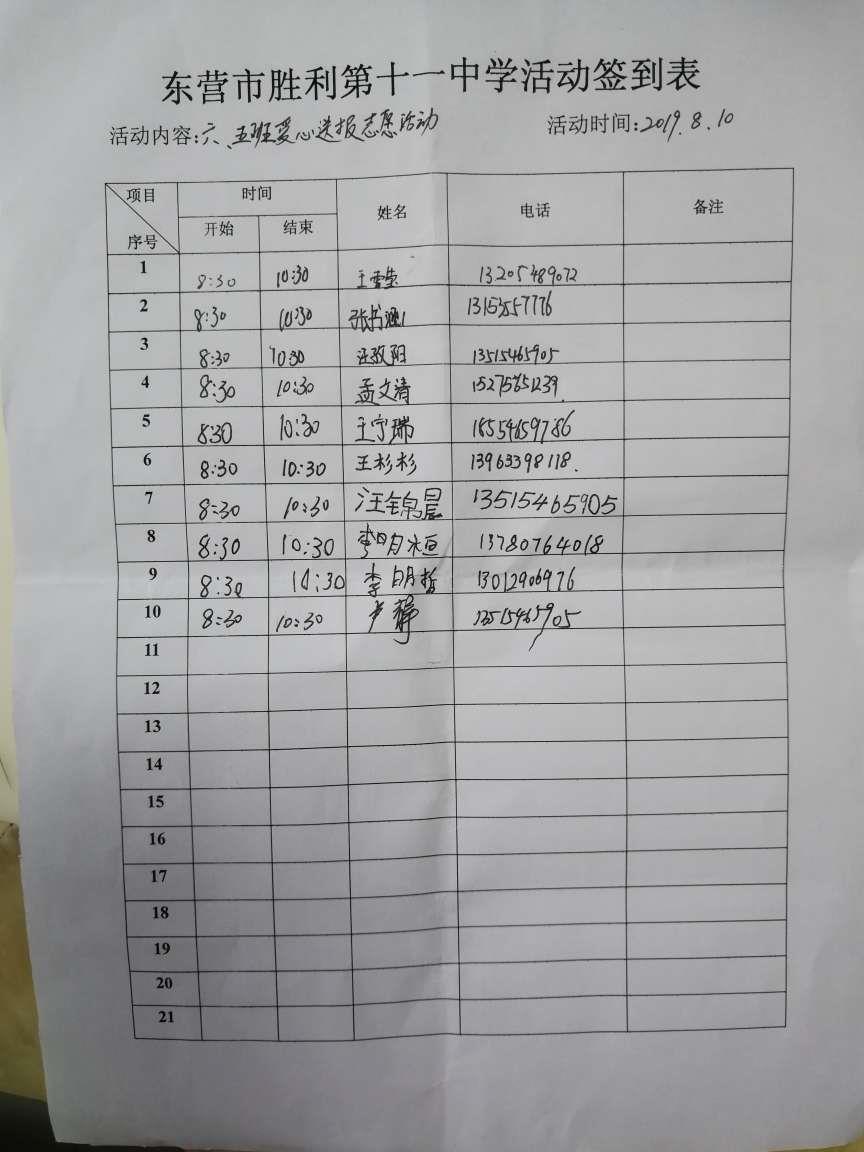 东营市胜利第十一中学活动签到表
活动内容:六、五班爱心送报志愿活动 活动时间:2019.8.10
项目 时间 姓名 电话 备注
序号 开始 结束
1 8:30 10:30 13205489072
2 8:30 10:30 张书涵 13153557776
3 8:30 10:30 汪敬阳 13515465905
4 8:30 10:30 孟文清
5 830 10:30 王宁瑞 18554659786
6 8:30 10:30 王杉杉 13963398118.
7 8:30 10:30 汪锦晨 13515465905
8 8:30 10:30 李明桓 13780764018
9 8:30 10:30 李明哲 13012906976
10 8:30 10:30 13515465905
11
12
13
14
15
16
17
18
19
20
21